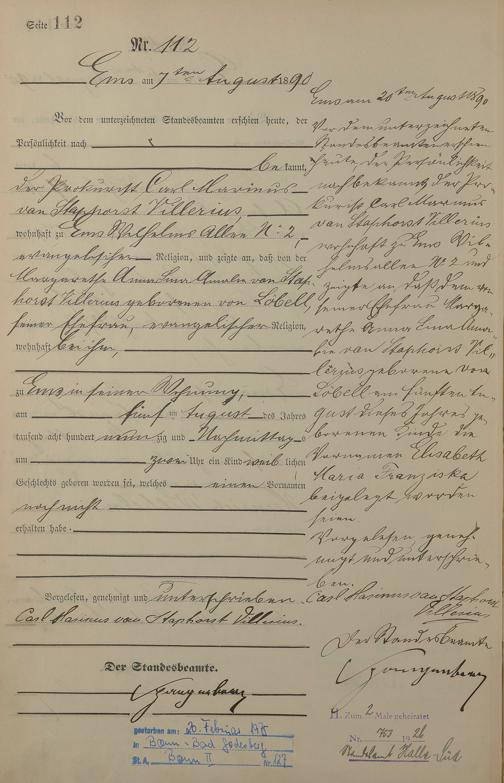 Seite 112
Nr. 112
Ems am 7ten August 1890
Vor dem unterzeichneten Standesbeamten erschien heute, der
Persönlichkeit nach
bekannt,
der Prokurist Carl Marinus
van Staphorst Villerius,
wohnhaft zu Ems Wilhelms Allee No 2,
evangelischer Religion, und zeigte an, daß von der
Margarethe Anna Lina Amalie van Stap-
horst Villerius geborenen von Löbell,
seiner Ehefrau, evangelischer Religion,
wohnhaft bei ihm,
zu Ems in seiner Wohnung,
am fünf ten August des Jahres
tausend acht hundert neunzig und Nachmittags
um zwei Uhr ein Kind weiblichen
Geschlechts geboren worden sei, welches einen Vornamen
noch nicht
erhalten habe.
Vorgelesen, genehmigt und unterschrieben
Carl Marinus van Staphorst Villerius.
Der Standesbeamte.
Ems am 20ten August 1890
Vor dem unterzeichneten
Standesbeamten erschien
heute, der Persönlichkeit
nach bekannt, der Pro-
kurist Carl Marinus
van Staphorst Villerius
wohnhaft zu Ems Wil-
helmsallee No 2 und
zeigte an, daß dem von
seiner Ehefrau Marga-
rethe Anna Lina Ama-
lie van Staphorst Vil-
lerius geborene von
Löbell am fünften Au-
gust dieses Jahres ge-
borenen Kinde die
Vornamen Elisabeth
Maria Franziska
beigelegt worden
seien.
Vorgelesen, geneh-
migt und unterschrie-
ben.
Carl Marinus van Staphorst
Villerius
Der Standesbeamte
H. Zum 2 Male geheiratet
Nr. 753 1926
Standesamt Halle Süd
gestorben am: 20. Februar 1975
in Bonn-Bad Godesberg
St.A. Bonn II Nr. 167